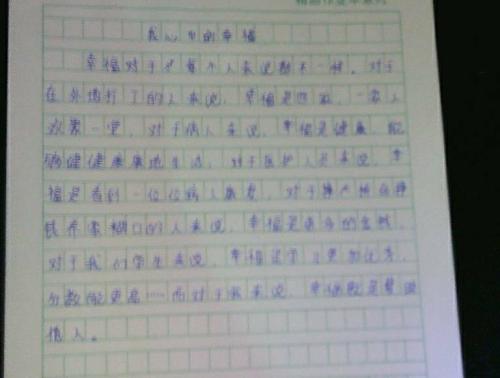 我心中的幸福
幸福对于每个人来说都不一样。对于
在外地打工的人来说,幸福是回家,一家人
欢聚一堂,对于病人来说,幸福是健康,能
够健健康康地生活,对于医护人员来说,幸
福是看到一位位病人康复,对于挣
钱养家糊口的人来说,幸福是更多的金钱,
对于我们学生来说,幸福是学习更加优秀,
分数能更高……而对于我来说,幸福就是帮助
他人。